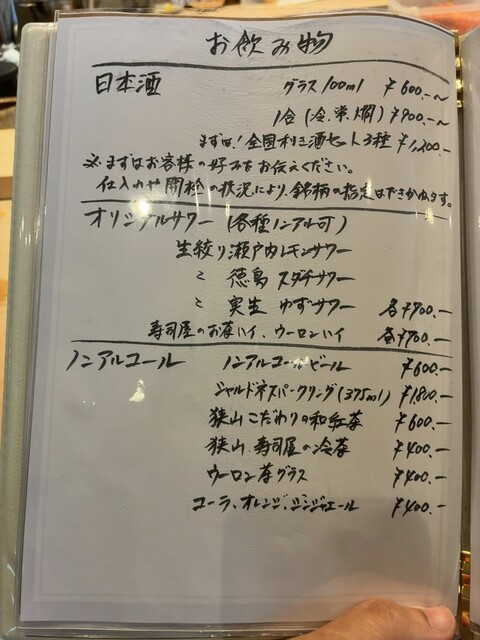 お飲み物
日本酒 グラス 100ml ¥600.-~
1合 (冷.常.燗) ¥900.-~
まずは! 全国利き酒セット3種 ¥1,200.-
※まずはお客様の好みをお伝えください。
仕入れや開栓の状況により、銘柄の指定はできかねます。
オリジナルサワー (各種ノンアル可)
生絞り瀬戸内レモンサワー
〃 徳島 スダチサワー
〃 実生 ゆずサワー 各¥900.-
寿司屋のお茶ハイ、ウーロンハイ 各¥700.-
ノンアルコール ノンアルコールビール ¥600.-
シャルドネスパークリング(375ml) ¥1800.-
狭山 こだわりの和紅茶 ¥600.-
狭山 寿司屋の冷茶 ¥400.-
ウーロン茶グラス ¥400.-
コーラ、オレンジ、ジンジャエール ¥400.-